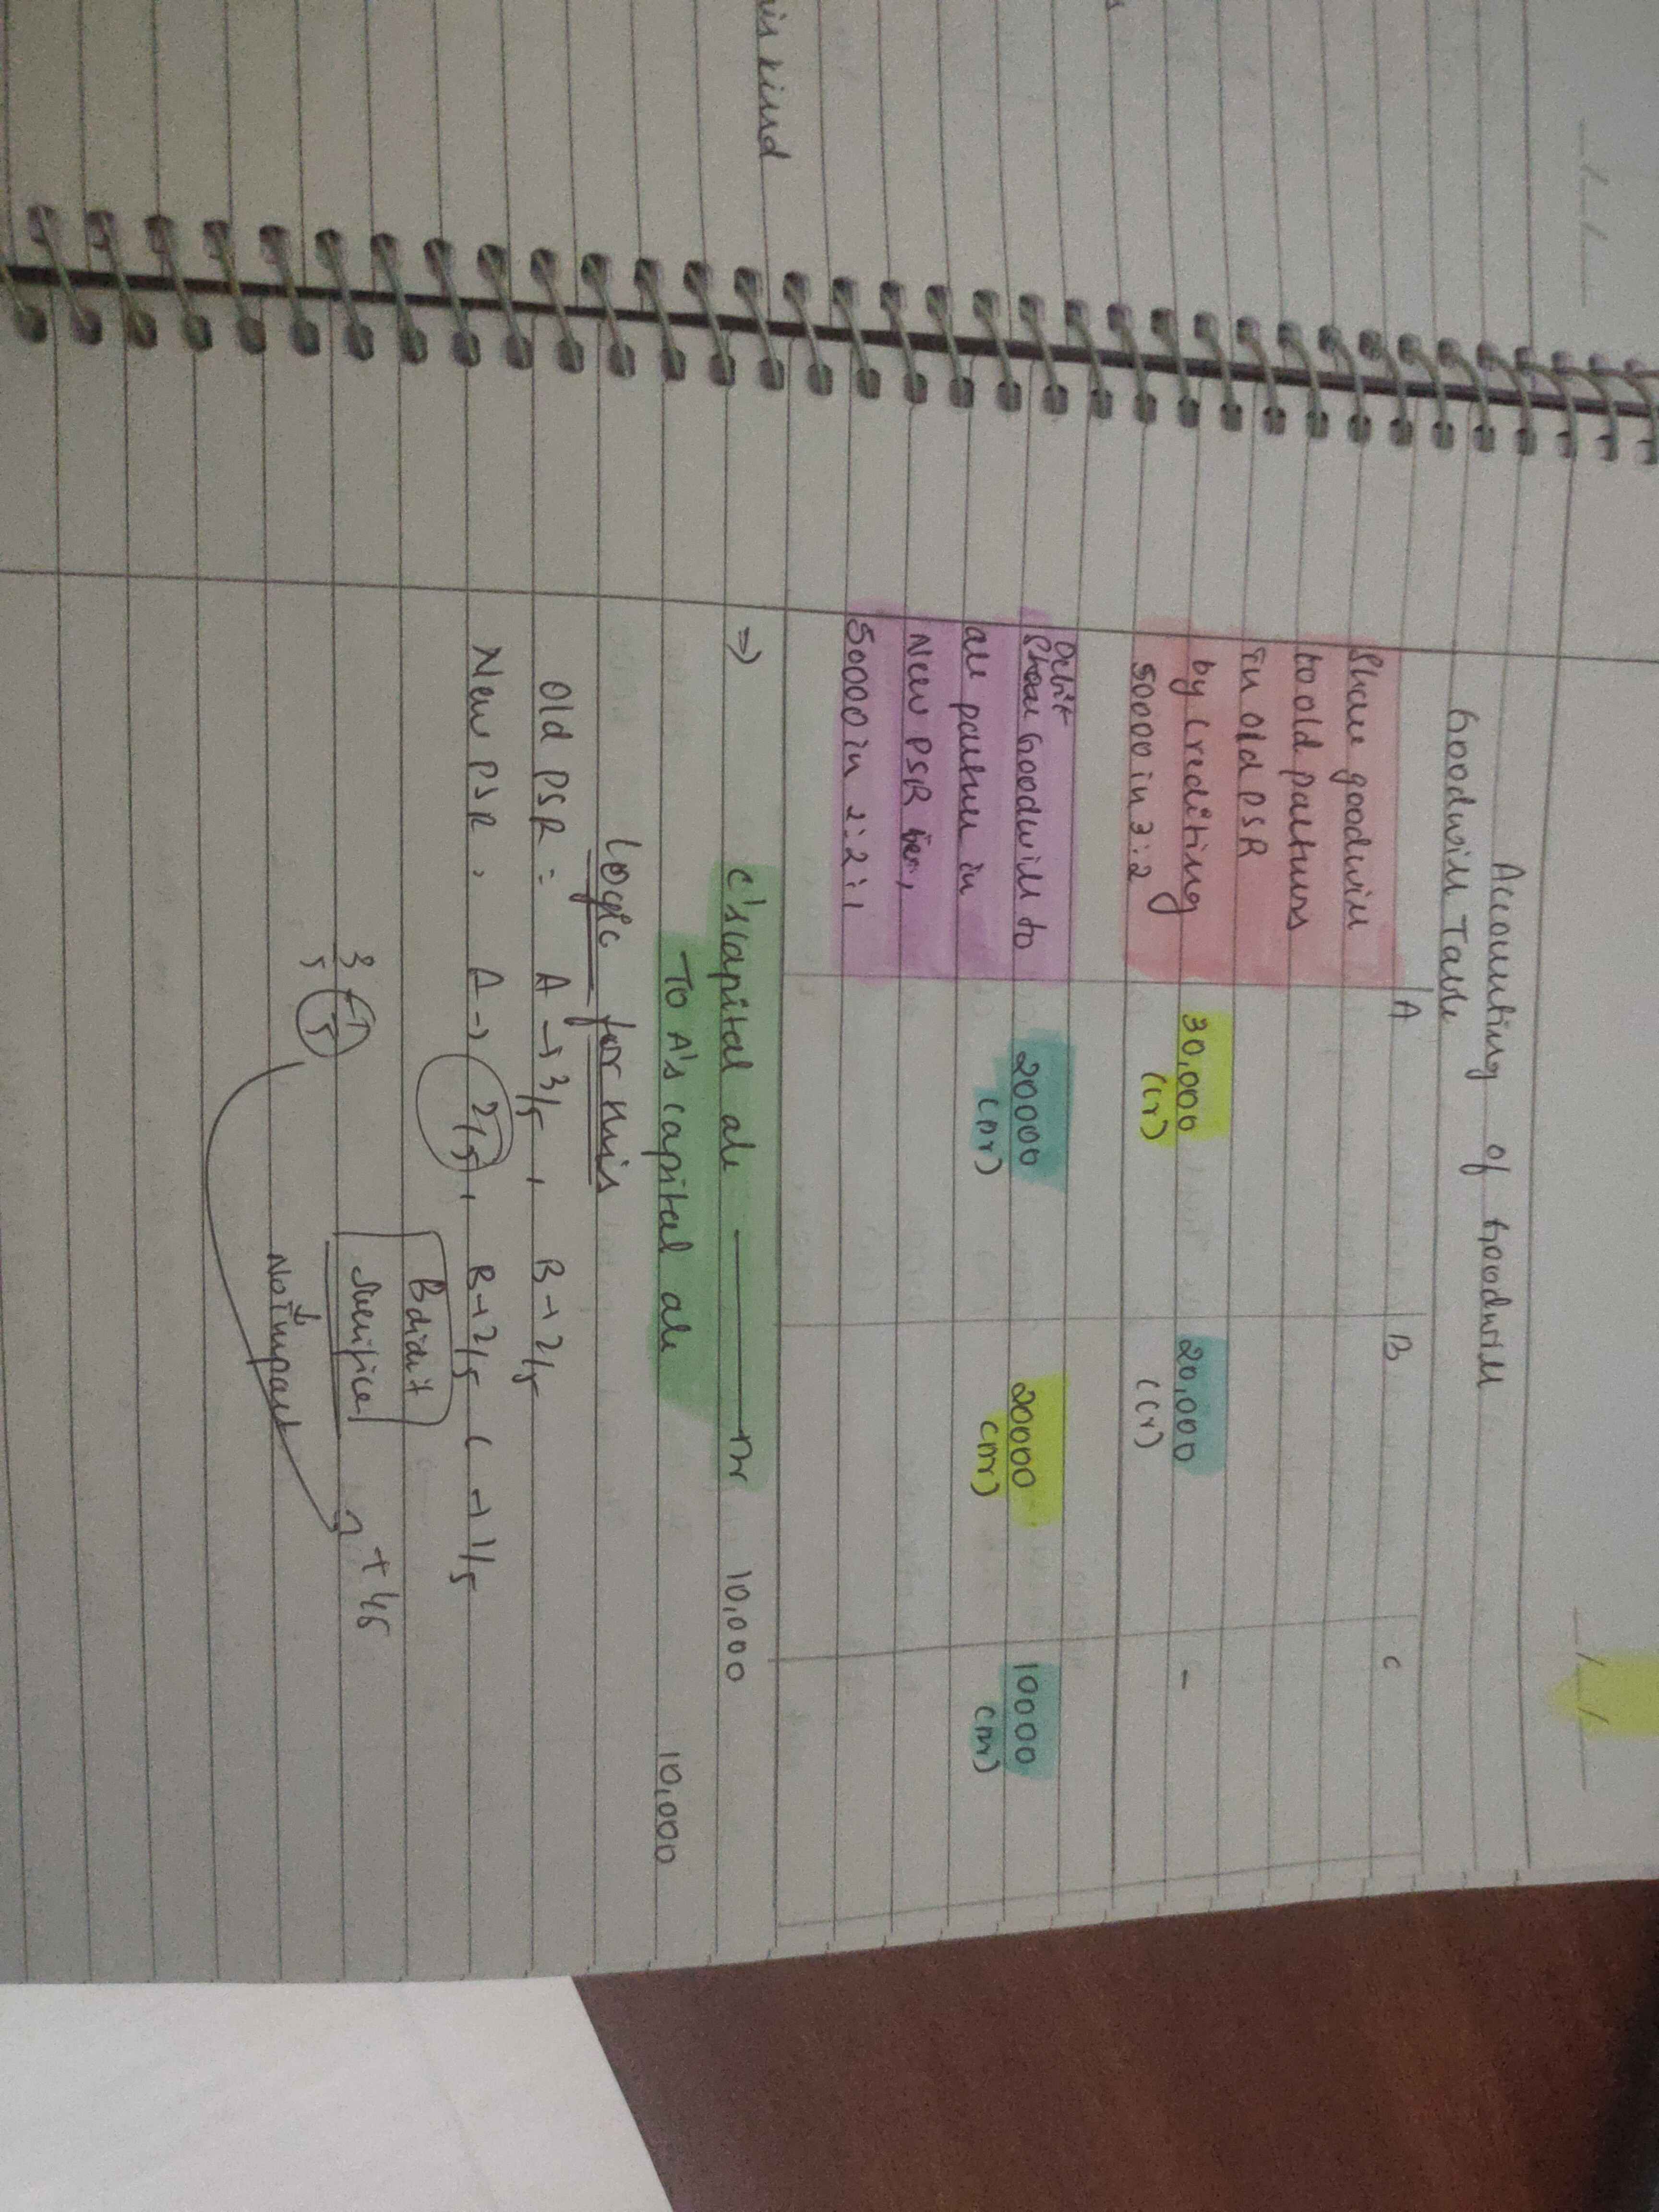 in kind
Accounting of Goodwill
Goodwill Table
A B C
Share goodwill
to old partners
in old PSR
by crediting
50000 in 3:2
30,000 20,000 -
(Cr) (Cr)
Debit
Goodwill to
all partner in
New PSR
50000 in 2:2:1
20000 20000 10000
(Dr) (Dr) (Dr)
=> C's Capital a/c ——— Dr 10,000
To A's Capital a/c 10,000
Logic for this
Old PSR = A → 3/5, B → 2/5
New PSR, A → 2/5, B → 2/5 C → 1/5
B didn't
sacrifice
3/5 -1/5 + 1/5
No impact